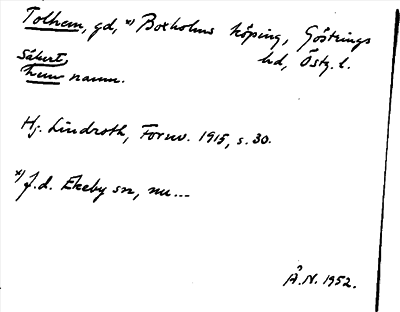 Tolhem, gd, x) Boxholms köping, Göstrings
hd, Östg. l.
Säkert
hem namn.
Hj. Lindroth, Fornv. 1915, s. 30.
x) f.d. Ekeby sn, nu...
Å.N. 1952.